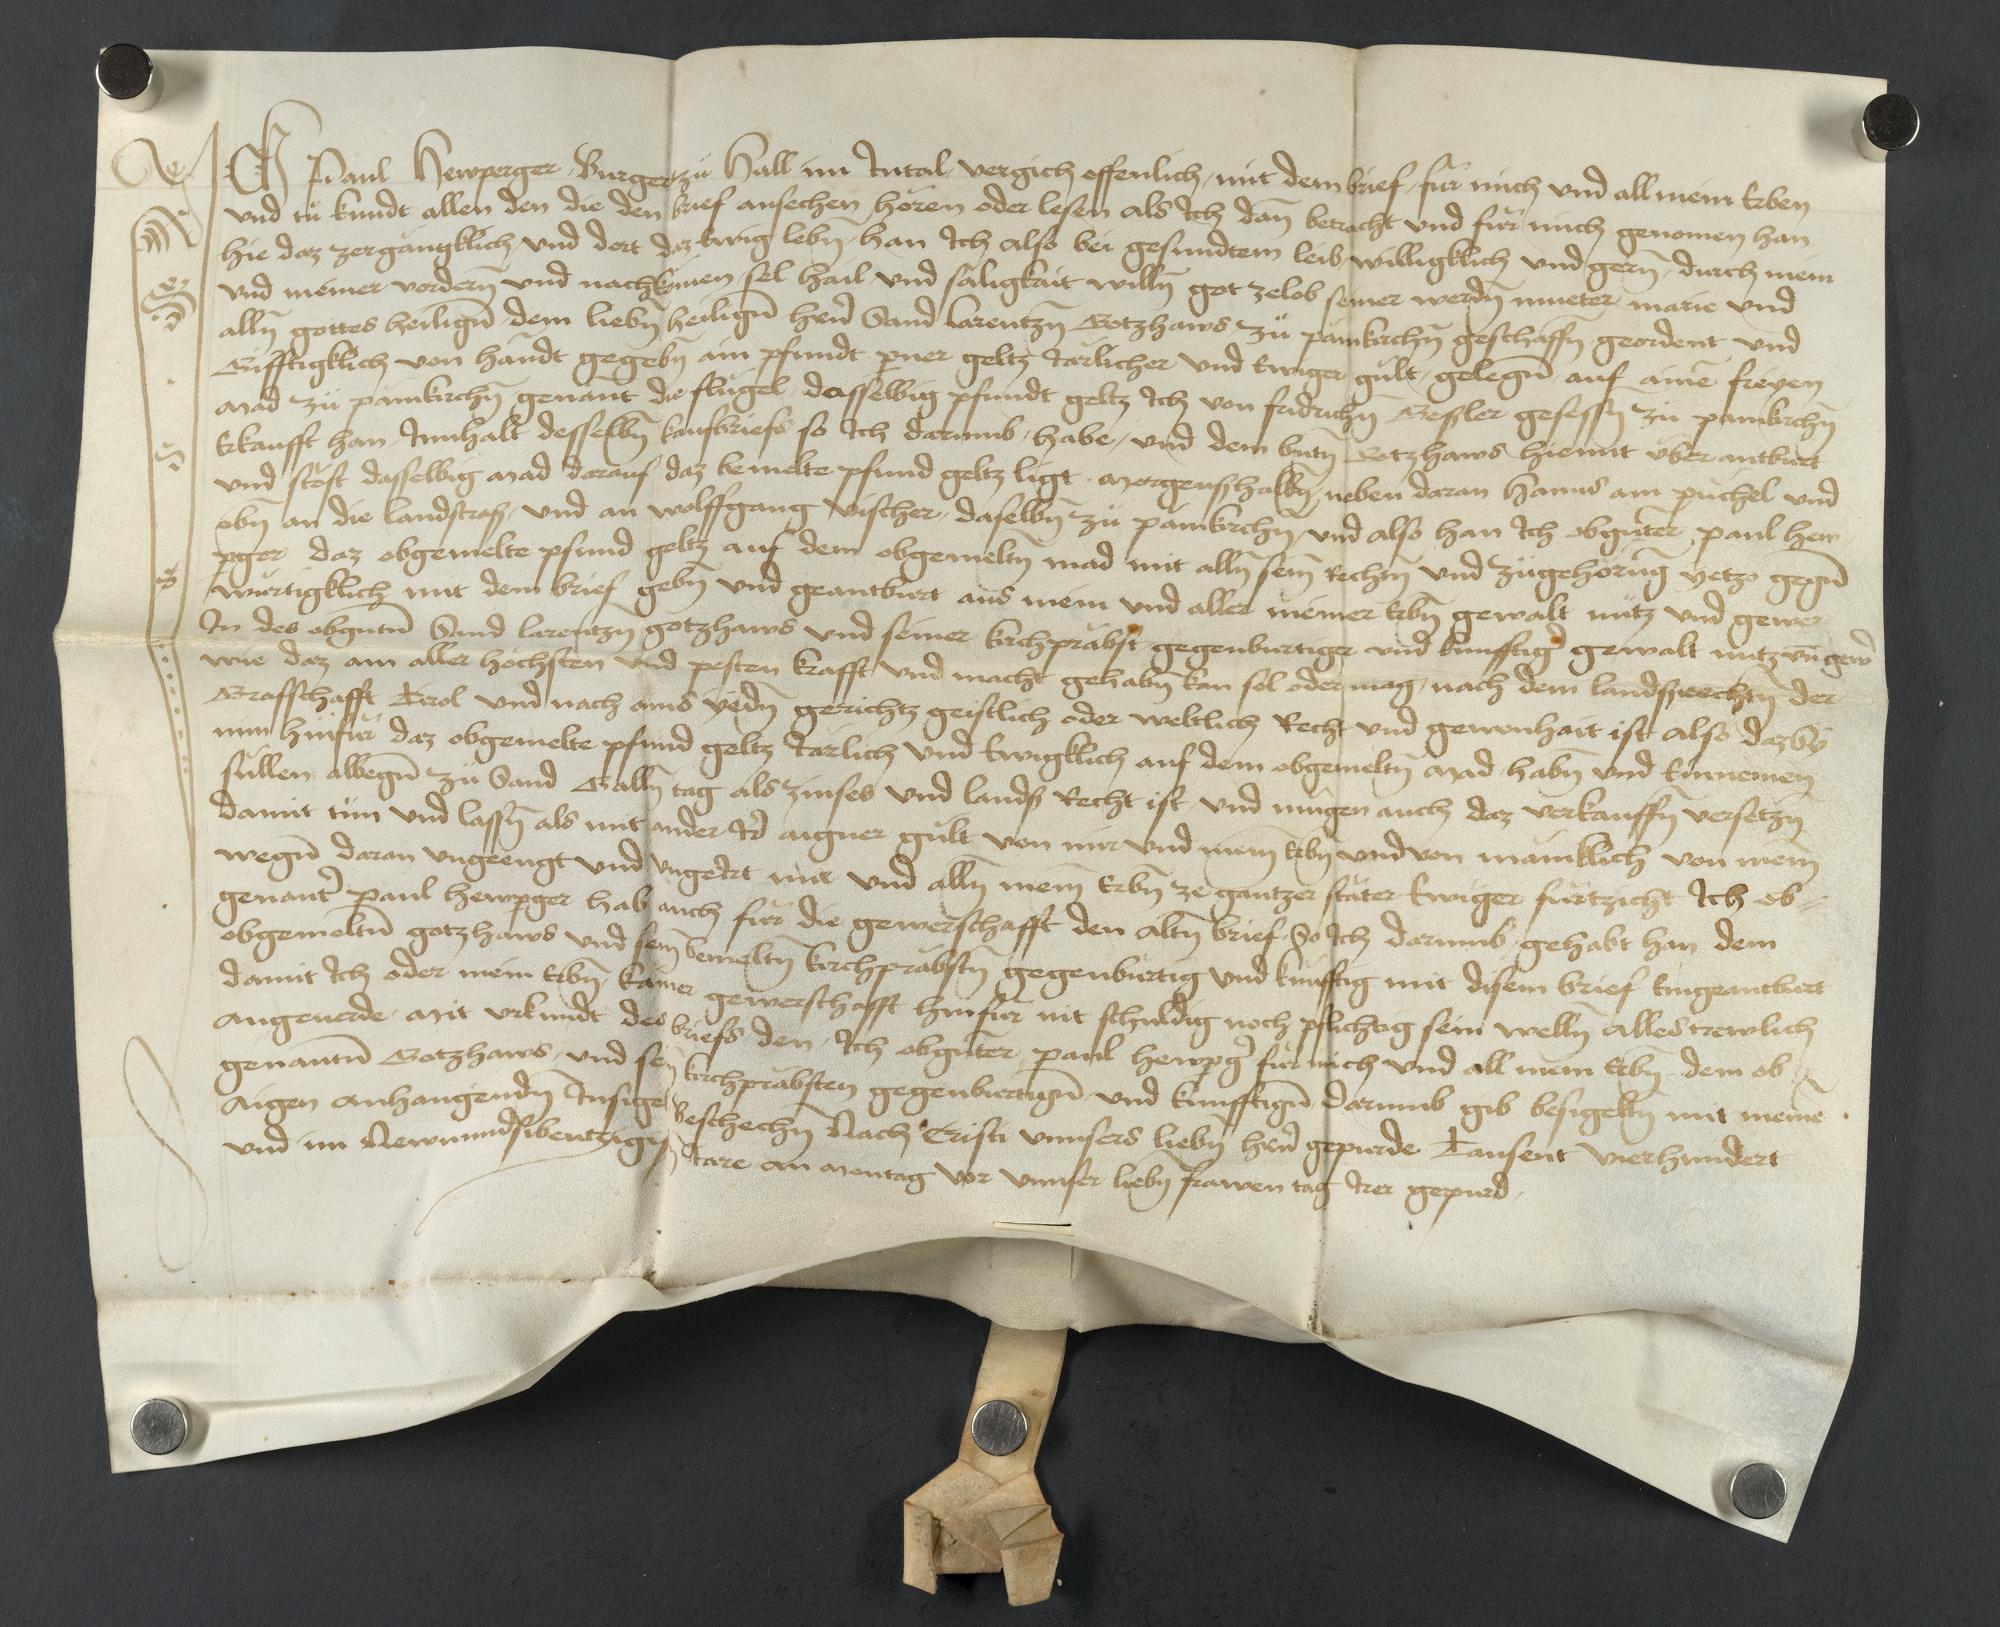 Ich Paul Hewperger Burger zů Hall im Intal vergich offenlich mit dem brief für mich und all mein Erben
vnd tů kundt allen den die den brief ansechen hören oder lesen als Ich dan̄ betracht vnd für mich genomen han
hie daz zergängklich vnd dort daz Ewig lebn̄ han Ich also bei gesundtem leib willigklich vnd gern̄ durch mein
vnd meiner vordern̄ vnd nachkomen sel hail vnd säligkait willn̄ got zelob seiner werdn̄ mueter marie vnd
alln̄ gottes heilign̄ dem liebn̄ heilign̄ hern̄ Sand larentzn̄ Gotzhaws zů pamkirchn̄ geschaffn̄ geordent vnd
Gifftigklich von handt gegebn̄ ain pfundt perner geltz Järlicher vnd Ewiger gült gelegn̄ auf aine͞ freyen
mad zů pämkirchn̄ genant die flügel dasselbig pfundt geltz Ich von fridrichn̄ Gesler gesessn̄ zů pämkirchn̄
Erkaufft han Innhalt desselbn̄ kaufbriefs so Ich darumb habe vnd dem Gotzhaws hiemit über antburt
vnd stöst dasselbig mad darauf daz bemelte pfund geltz ligt morgenshalbn̄ neben daran Hanns am püchel vnd
obn̄ an die landstrass vnd an wolffgang vischer daselbn̄ zů pämkirchn̄ vnd also han Ich obgn̄ter paul hew
pger daz obgemelte pfund geltz auf dem obgemeltn̄ mad mit alln̄ sein̄ Rechtn̄ vnd zůgehörun̄g yetzo gegn̄
würtigklich mit dem brief gebn̄ vnd geantburt aus mein vnd aller meiner Erbn̄ gewalt nutz vnd gewer
In des obgn̄tn̄ Sand larentzn̄ gotzhaws vnd seiner kirchpräbst gegenburtiger vnd künfftiger gewalt nutz vn̄ gewer
wie daz am aller höchsten vnd pesten krafft vnd macht gehabn̄ kan sol oder mag nach dem landsrechtn̄ der
Graffschafft Tirol vnd nach ains yedn̄ gerichtz geistlich oder weltlich Recht vnd gewonhait ist also daz sy
nun hinfür daz obgemelte pfund geltz Järlich vnd Ewigklich auf dem obgemeltn̄ mad habn̄ vnd Einnemen
süllen albegn̄ zů Sand Galln̄ tag als zinses vnd lands Recht ist vnd mügen auch daz verkauffn̄ versetzn̄
damit tůn vnd lassn̄ als mit ander Ir aigner gült von mir vnd mein̄ Erbn̄ vnd von mäniklich von mein̄
wegn̄ daran vngeengt vnd vngeIrt mit vnd alln̄ mein̄ Erbn̄ ze gantzer stäter Ewiger fürtzicht Ich ob
genanter paul hewpger hab auch für die gewerschafft den altn̄ brief So Ich darumb gehabt han dem
obgemeltn̄ gotzhaws vnd sein̄ bemeltn̄ kirchpräbstn̄ gegenbürtig vnd künfftig mit disem brief Eingeantburt
damit Ich oder mein Erbn̄ kainer gewerschafft hinfür nit schuldig noch pflichtig sein welln̄ alles trewlich
angeuerde Mit vrkundt des briefs den Ich obgn̄ter paul hewpger für mich vnd all mein Erbn̄ dem ob
genantn̄ Gotzhaws vnd sein̄ kirchpräbsten gegenbürtign̄ vnd künfftign̄ darumb gib besigeltn̄ mit meine͞
aigen anhangendn̄ Insigel Beschechn̄ Nach Cristi vnnsers liebn̄ hern̄ gepurde Tausent vierhundert
vnd im Newnundsibentzigistn̄ Iare an montag vor vnnser liebn̄ frawen tag Irer gepurd